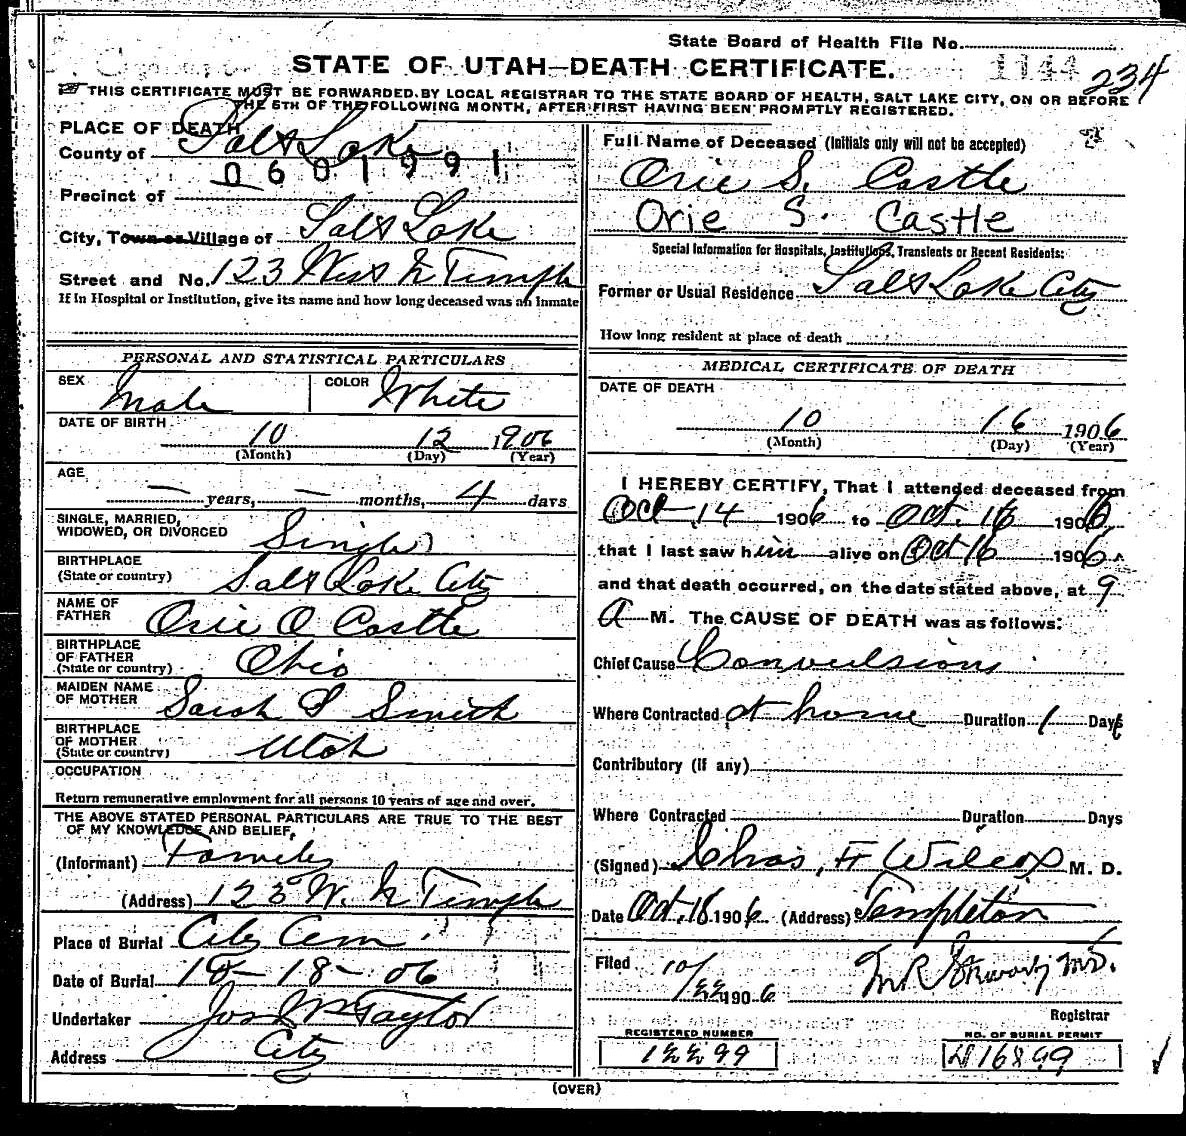 State Board of Health File No. 1144
234
STATE OF UTAH—DEATH CERTIFICATE.
THIS CERTIFICATE MUST BE FORWARDED BY LOCAL REGISTRAR TO THE STATE BOARD OF HEALTH, SALT LAKE CITY, ON OR BEFORE
THE 5TH OF THE FOLLOWING MONTH, AFTER FIRST HAVING BEEN PROMPTLY REGISTERED.
PLACE OF DEATH
County of Salt Lake
0601991
Precinct of
City, Town or Village of Salt Lake
Street and No. 123 West N Temple
If in Hospital or Institution, give its name and how long deceased was an inmate
PERSONAL AND STATISTICAL PARTICULARS
SEX Male COLOR White
DATE OF BIRTH 10 12 1906
(Month) (Day) (Year)
AGE
— years, — months, 4 days
SINGLE, MARRIED,
WIDOWED, OR DIVORCED Single
BIRTHPLACE
(State or country) Salt Lake City
NAME OF
FATHER Orie O Castle
BIRTHPLACE
OF FATHER
(State or country) Ohio
MAIDEN NAME
OF MOTHER Sarah S Smith
BIRTHPLACE
OF MOTHER
(State or country) Utah
OCCUPATION
Return remunerative employment for all persons 10 years of age and over.
THE ABOVE STATED PERSONAL PARTICULARS ARE TRUE TO THE BEST
OF MY KNOWLEDGE AND BELIEF,
(Informant) Family
(Address) 123 W. N Temple
Place of Burial City Cem
Date of Burial 10-18-06
Undertaker Jos Wm Taylor
Address City
Full Name of Deceased (Initials only will not be accepted)
Orie S. Castle
Orie S. Castle
Special Information for Hospitals, Institutions, Transients or Recent Residents:
Former or Usual Residence Salt Lake City
How long resident at place of death
MEDICAL CERTIFICATE OF DEATH
DATE OF DEATH
10 16 1906
(Month) (Day) (Year)
I HEREBY CERTIFY, That I attended deceased from
Oct 14 1906 to Oct. 16 1906,
that I last saw him alive on Oct 16 1906,
and that death occurred, on the date stated above, at 9
A M. The CAUSE OF DEATH was as follows:
Chief Cause Convulsions
Where Contracted at home Duration 1 Days
Contributory (if any)
Where Contracted Duration Days
(Signed) Chas. F Wilcox M. D.
Date Oct. 16 1906 (Address) Templeton
Filed 10/22 1906 M.R. Stewart M.D.
Registrar
REGISTERED NUMBER NO. OF BURIAL PERMIT
12299 A16899
(OVER)